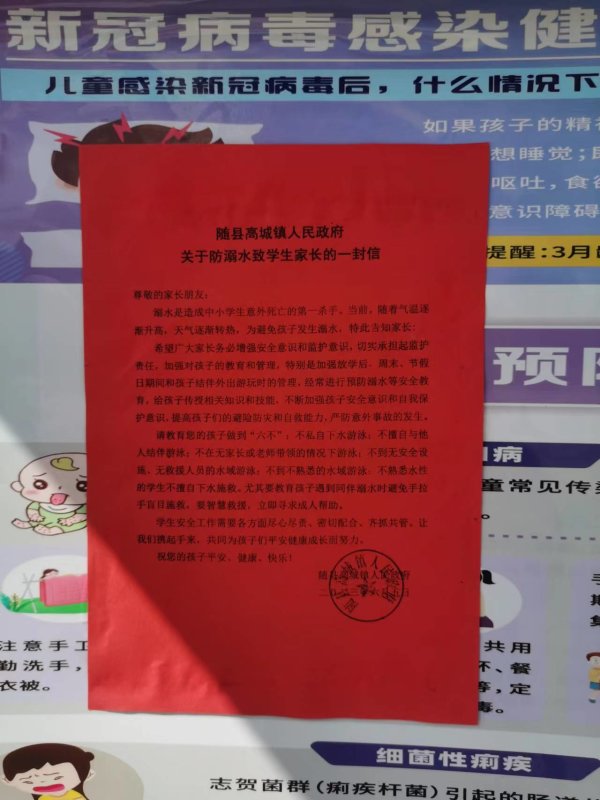 新冠病毒感染健
儿童感染新冠病毒后，什么情况下
如果孩子的精神
想睡觉；
呕吐，食欲
意识障碍
提醒：3月
随县高城镇人民政府
关于防溺水致学生家长的一封信
尊敬的家长朋友：
溺水是造成中小学生意外死亡的第一杀手。当前，随着气温逐
渐升高，天气逐渐转热，为避免孩子发生溺水，特此告知家长：
希望广大家长务必增强安全意识和监护意识，切实承担起监护
责任，加强对孩子的教育和管理，特别是加强放学后、周末、节假
日期间和孩子结伴外出游玩时的管理，经常进行预防溺水等安全教
育，给孩子传授相关知识和技能，不断加强孩子安全意识和自我保
护意识，提高孩子们的避险防灾和自救能力，严防意外事故的发生。
请教育您的孩子做到“六不”：不私自下水游泳；不擅自与他
人结伴游泳；不在无家长或老师带领的情况下游泳；不到无安全设
施、无救援人员的水域游泳；不到不熟悉的水域游泳；不熟悉水性
的学生不擅自下水施救。尤其要教育孩子遇到同伴溺水时避免手拉
手盲目施救，要智慧救援，立即寻求成人帮助。
学生安全工作需要各方面尽心尽责、密切配合、齐抓共管。让
我们携起手来，共同为孩子们平安健康成长而努力。
祝您的孩子平安、健康、快乐！
随县高城镇人民政府
预防
病
童常见传染
注意手卫
勤洗手，
衣被。
共用
餐
定
细菌性痢疾
志贺菌群（痢疾杆菌）引起的肠道